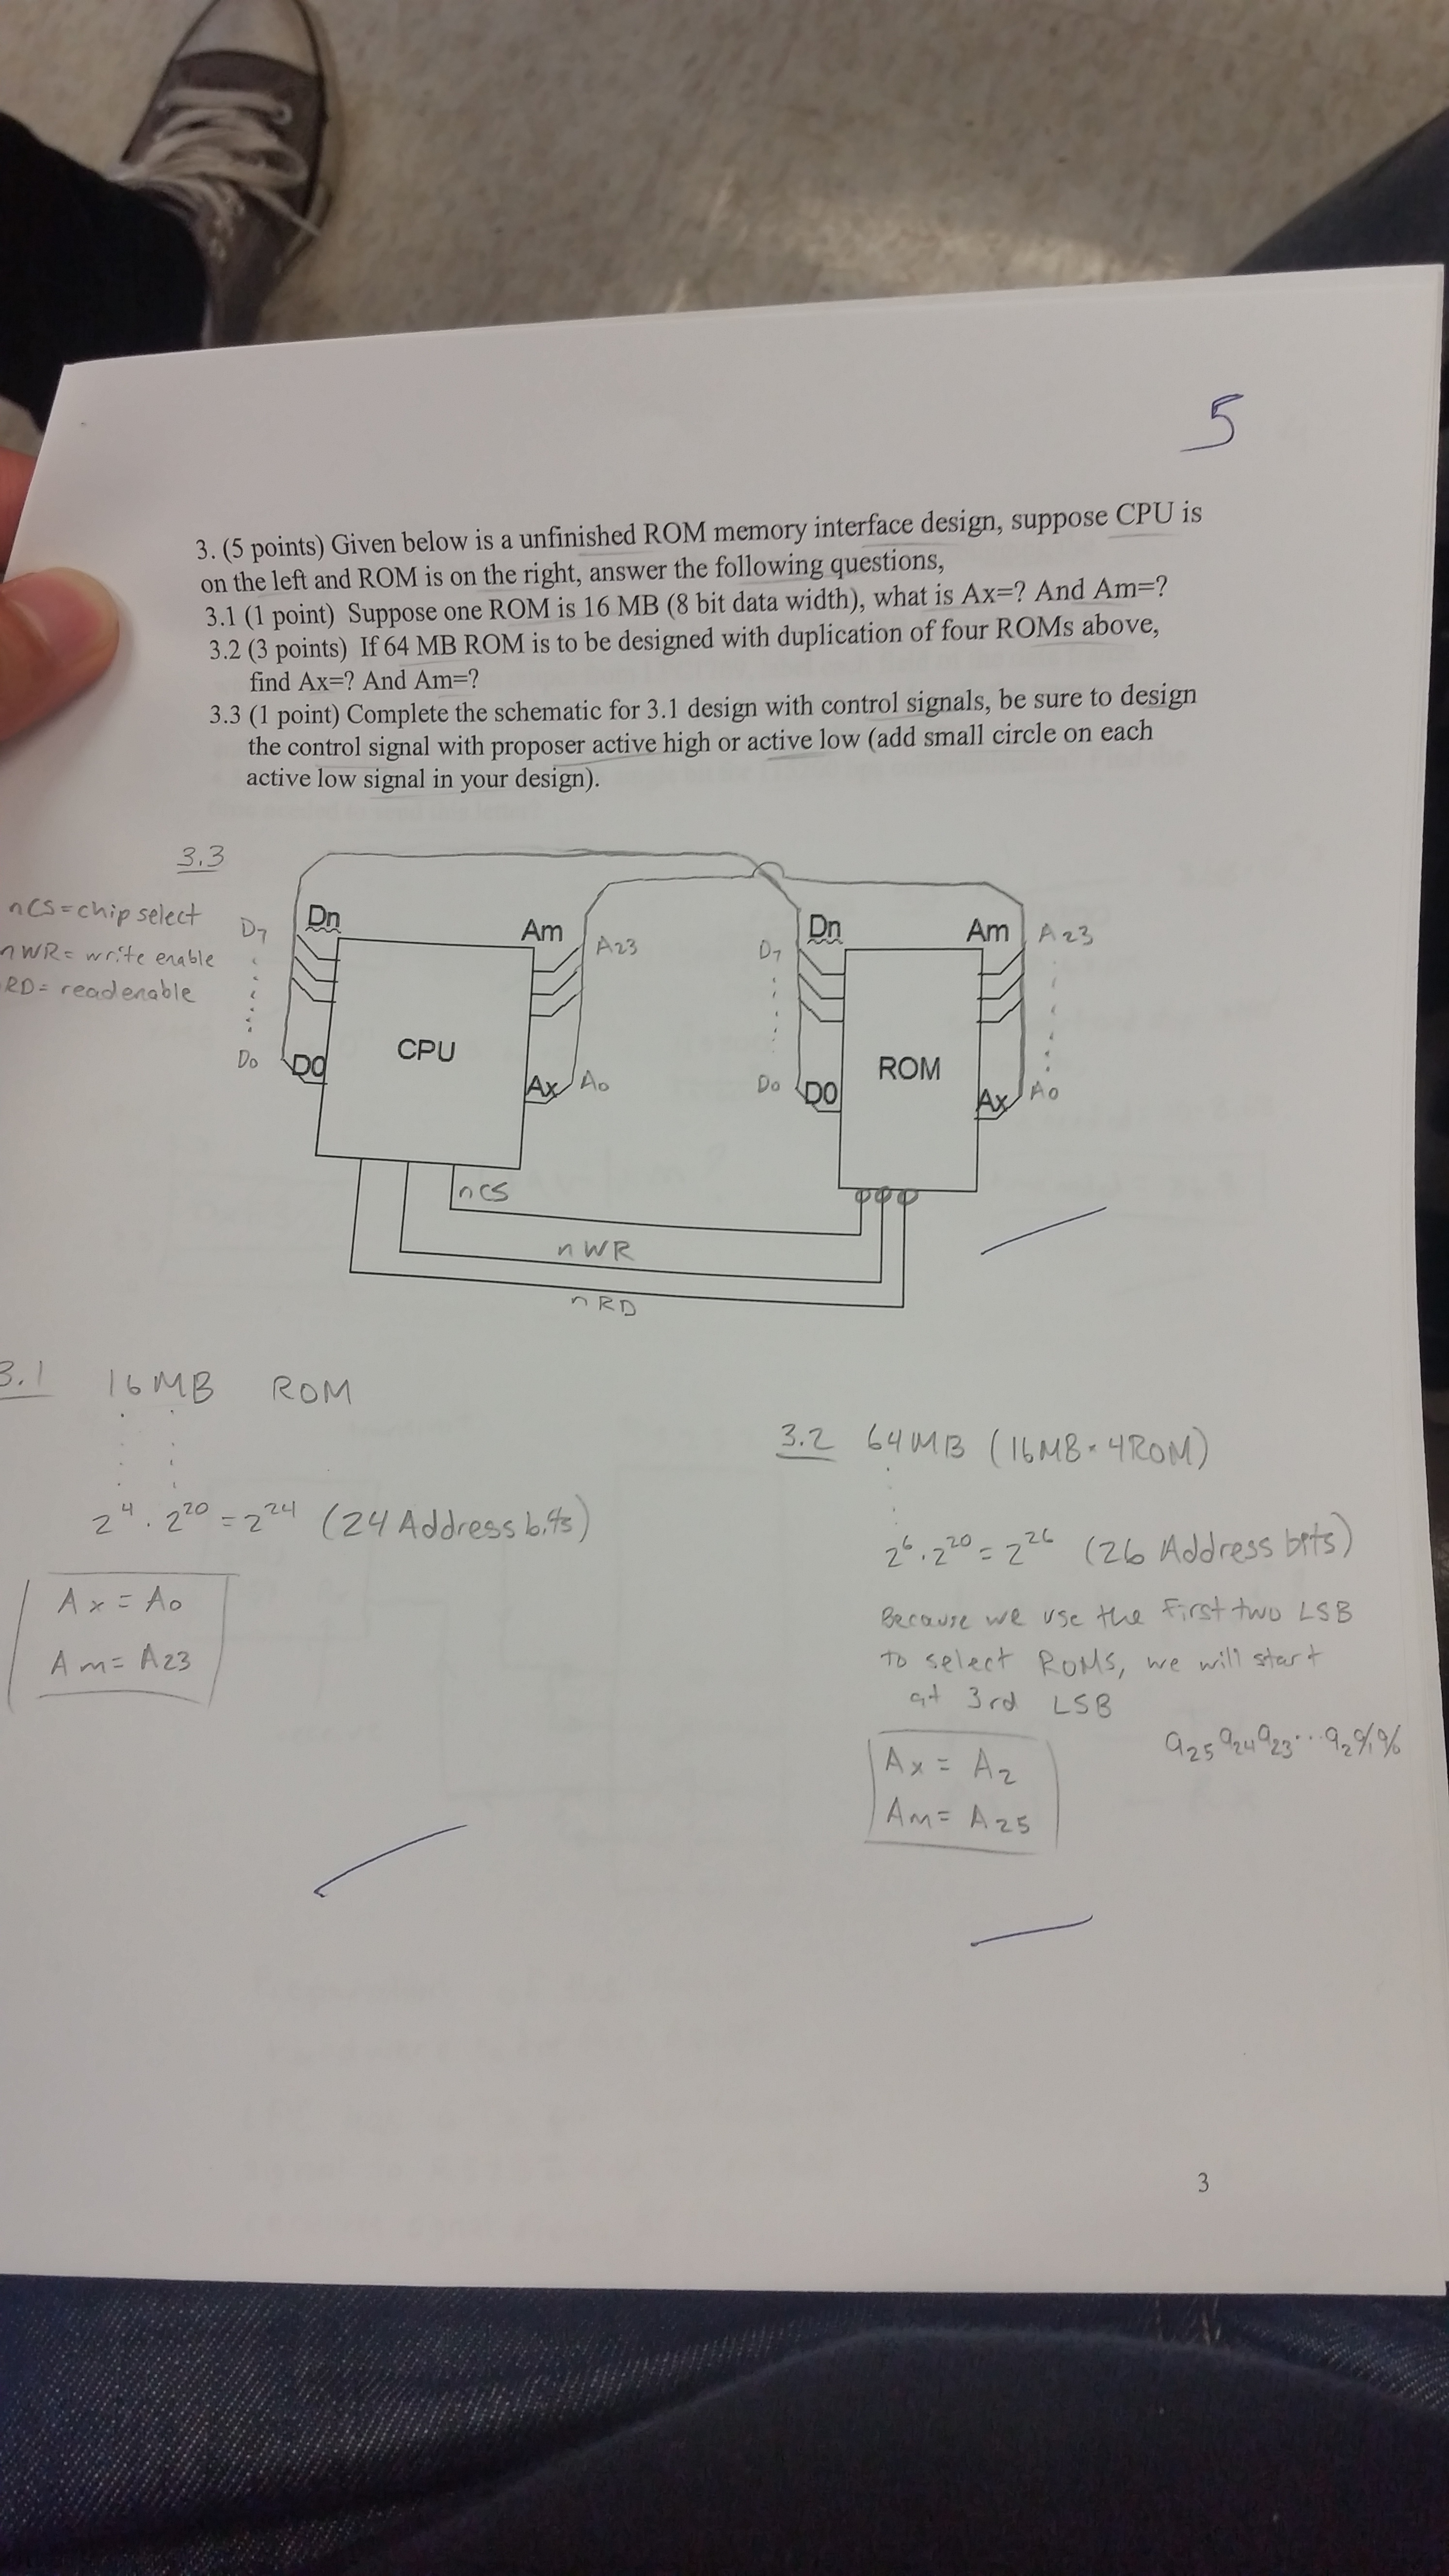 5
3. (5 points) Given below is a unfinished ROM memory interface design, suppose CPU is
on the left and ROM is on the right, answer the following questions,
3.1 (1 point) Suppose one ROM is 16 MB (8 bit data width), what is Ax=? And Am=?
3.2 (3 points) If 64 MB ROM is to be designed with duplication of four ROMs above,
find Ax=? And Am=?
3.3 (1 point) Complete the schematic for 3.1 design with control signals, be sure to design
the control signal with proposer active high or active low (add small circle on each
active low signal in your design).
3.3
nCS = chip select
nWR = write enable
RD = read enable
D7
D0
Dn
D0
CPU
Am
Ax
A23
A0
D7
D0
Dn
D0
ROM
Am
Ax
A23
A0
nCS
nWR
nRD
3.1 16MB ROM
2^4 · 2^20 = 2^24 (24 Address bits)
Ax = A0
Am = A23
3.2 64MB (16MB · 4ROM)
2^6 · 2^20 = 2^26 (26 Address bits)
Because we use the first two LSB
to select ROMs, we will start
at 3rd LSB
a25 a24 a23 ... a2 a1 a0
Ax = A2
Am = A25
3